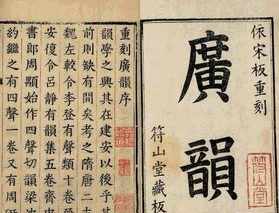 依宋板重刻
廣韻
符山堂藏板
符山堂
重刻廣韻序
韻學之興其在建安以後乎其
前則缺有間矣考之隋唐二
魏左較令李登有聲類十卷
安復令呂靜有韻集五卷齊中
書郎周顒始作四聲切韻梁沈
約繼之有四聲一卷又有周